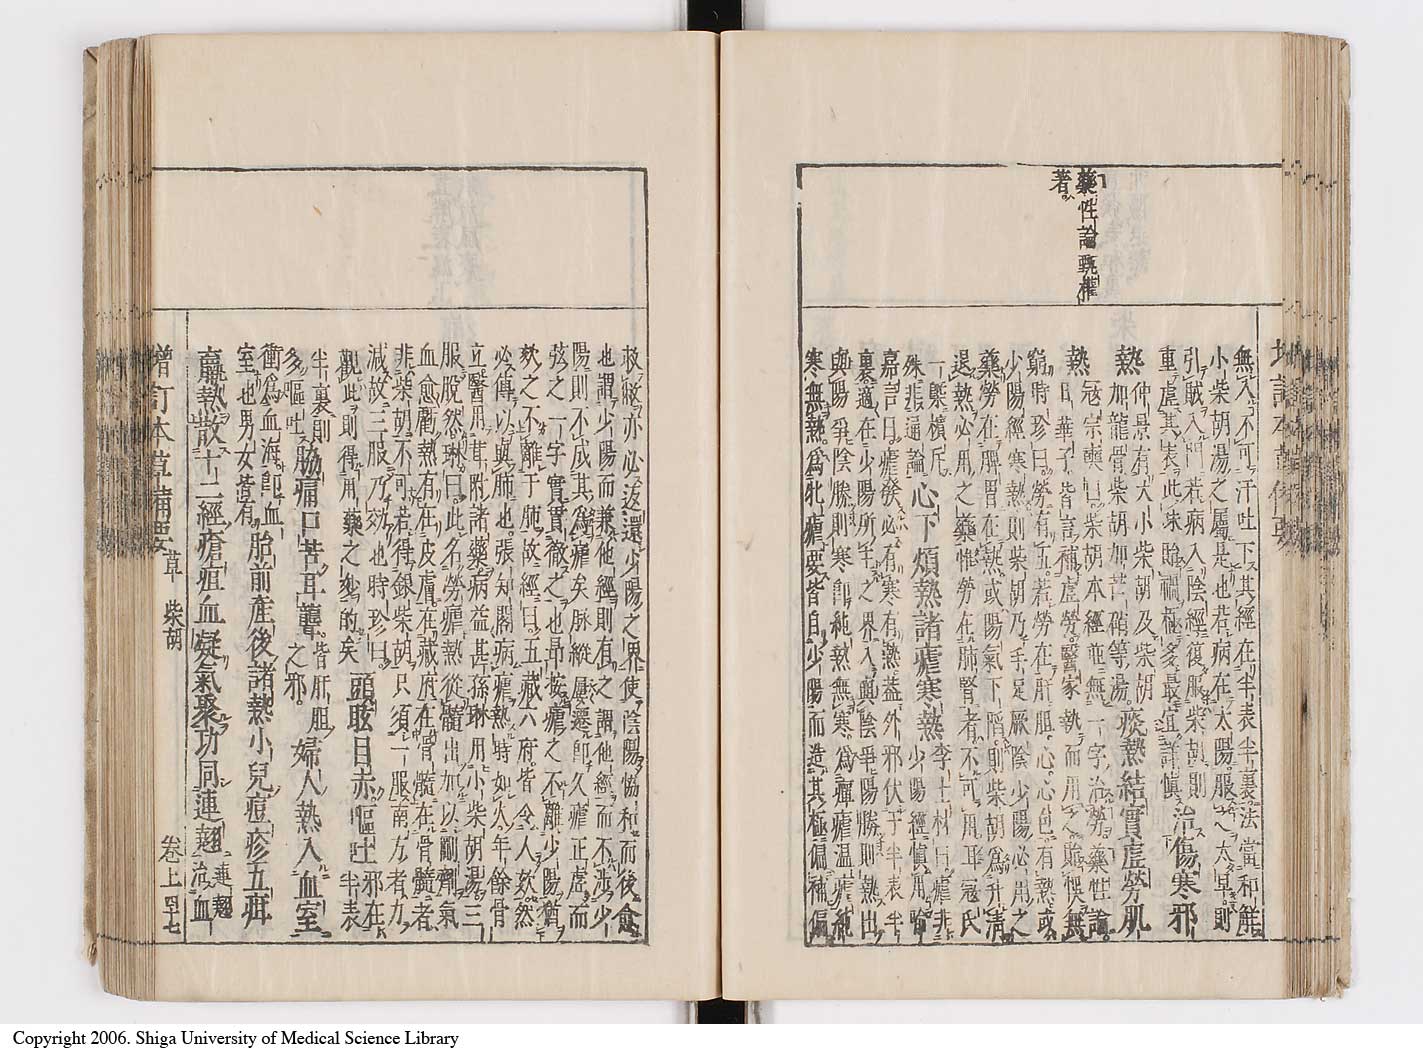 藥性論甄權
著
無入不可汗吐下其經在半表半裏法當和解
小柴胡湯之屬是也若病在太陽服之太早則
引賊入門若病入陰經復服柴胡則
重虛其表此味貽禍極多最宜詳慎治傷寒邪
熱仲景有大小柴胡及柴胡
加龍骨柴胡加芒硝等湯痰熱結實虛勞肌
熱寇宗奭曰柴胡本經並無一字治勞藥性論
日華子皆言補虛勞醫家執而用之貽悞無
窮時珍曰勞有五若勞在肝胆心心包有熱或
少陽經寒熱則柴胡乃手足厥陰少陽必用之
藥勞在脾胃在熱或陽氣下陷則柴胡爲升清
退熱必用之藥惟勞在肺腎者不可用耳寇氏
一槩擯斥
殊非通論心下煩熱諸瘧寒熱李士材曰瘧非
少陽經慎用喻
嘉言曰瘧發必有寒有熱蓋外邪伏于半表半
裏適在少陽所主之界入與陰爭陽勝則熱出
與陽爭陰勝則寒卽純熱無寒爲癉瘧温瘧純
寒無熱爲牝瘧要皆自少陽而造其極偏補偏
救敝亦必返還少陽之界使陰陽恊和而後愈
也謂少陽而兼他經則有之謂他經而不涉少
陽則不成其爲瘧矣脉縱屢遷卽久瘧正虛而
弦之一字實貫徹之也昂按瘧之不離少陽猶
欬之不離于肺故經曰五臓六府皆令人欬然
必傳以與肺也張知閣病瘧熱時如火年餘骨
立醫用茸附諸藥病益甚孫琳用小柴胡湯三
服脫然琳曰此名勞瘧熱從髓出加以剛劑氣
血愈虧熱有在皮膚在藏府在骨髓在骨髓者
非柴胡不可若得銀柴胡只須一服南方者力
減故三服乃效也時珍曰
觀此則得用藥之妙的矣頭眩目赤嘔吐邪在
半表
半裏則
多嘔吐脇痛口苦耳聾皆肝胆
之邪婦人熱入血室
衝爲血海卽血
室也男女皆有胎前產後諸熱小兒痘疹五疳
羸熱散十二經瘡疽血凝氣聚功同連翹連翹
治血
增訂本草備要 草 柴胡 卷上 四十七
Copyright 2006. Shiga University of Medical Science Library